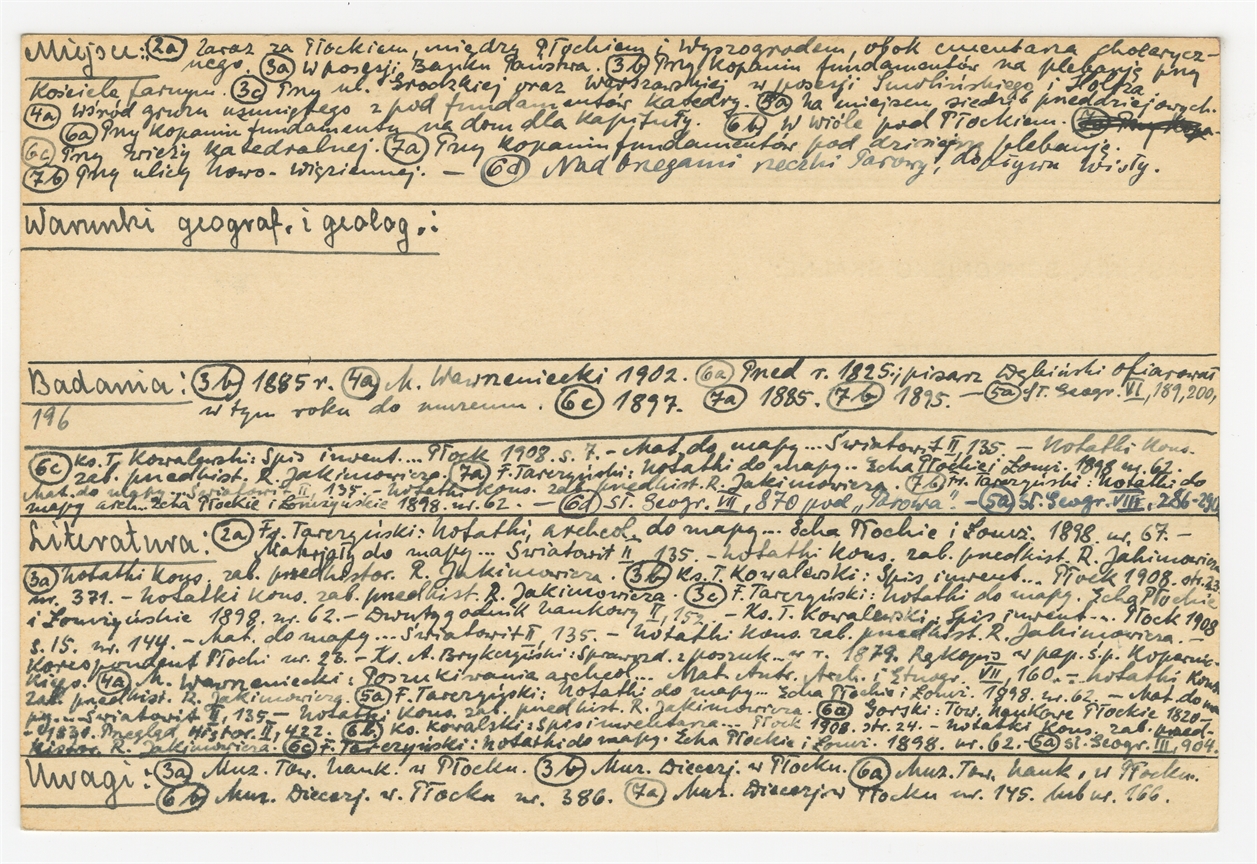 Miejsce: (2a) Zaraz za Płockiem, między Płockiem i Wyszogrodem, obok cmentarza cholerycz-
nego. (3a) W posesji Banku Państwa. (3b) Przy kopaniu fundamentów na plebanję przy
Kościele farnym. (3c) Przy ul. Grodzkiej oraz Warszawskiej w posesji Smolińskiego i Holtza
(4a) Wśród gruzu usuniętego z pod fundamentów Katedry. (5a) Na miejscu siedzib przeddziejowych.
(6a) Przy kopaniu fundamentu na dom dla Kapituły. (6b) W Wiśle pod Płockiem.
(6c) Przy wieży Katedralnej. (7a) Przy kopaniu fundamentów pod dzisiejszą plebanję.
(7b) Przy ulicy Nowo-Więziennej. — (6d) Nad brzegami rzeczki Parowy, dopływu Wisły.
Warunki geograf. i geolog.:
Badania: (3b) 1885 r. (4a) M. Wawrzeniecki 1902. (6a) Przed r. 1825; pisarz Dębiński ofiarował
w tym roku do muzeum. (6c) 1897. (7a) 1885. (7b) 1895. — (5a) Sł. Geogr. VI, 189, 200,
196
(6c) Ks. T. Kowalewski: Spis inwent... Płock 1908. s. 7. - Mat. do mapy... Światowit II, 135. - Notatki Kons.
zab. przedhist. R. Jakimowicza. (7a) F. Tarczyński: Notatki do mapy.. Echa Płockie i Łomż. 1898 nr. 62.
Mat. do mapy... Światowit II, 135. - Notatki Kons. zab. przedhist. R. Jakimowicza. (7b) Fr. Tarczyński: Notatki do
mapy arch... Echa Płockie i Łomżyńskie 1898. nr. 62. — (6d) Sł. Geogr. VII, 870 pod „Parowa" — (5a) Sł. Geogr. VIII, 286-290
Literatura: (2a) Fr. Tarczyński: Notatki, archeol. do mapy... Echa Płockie i Łomż. 1898. nr. 67. -
Materjały do mapy... Światowit II, 135. - Notatki Kons. zab. przedhist. R. Jakimowicza
(3a) Notatki Kons. zab. przedhistor. R. Jakimowicza. (3b) Ks. T. Kowalewski: Spis inwent... Płock 1908. str. 23.
nr. 371. - Notatki Kons. zab. przedhist. R. Jakimowicza. (3c) F. Tarczyński: Notatki do mapy. Echa Płockie
i Łomżyńskie 1898. nr. 62. - Dwutygodnik naukowy II, 152. - Ks. T. Kowalewski, Spis inwent... Płock 1908
s. 15. nr. 144. - Mat. do mapy... Światowit II, 135. - Notatki Kons. zab. przedhist. R. Jakimowicza. -
Korespondent Płocki nr. 23. - Ks. A. Brykczyński: Sprawozd. z poszuk... w r. 1879. Rękopis w pap. ś.p. Kopernic-
kiego. (4a) M. Wawrzeniecki: Poszukiwania archeol... Mat. Antr. Arch. i Etnogr. VII, 160. - Notatki Kons
zab. przedhist. R. Jakimowicza (5a) F. Tarczyński: Notatki do mapy... Echa Płockie i Łomż. 1898. nr. 62. - Mat. do ma
py... Światowit II, 135. - Notatki Kons. zab. przedhist. R. Jakimowicza. (6a) Gorski: Tow. Naukowe Płockie 1820-
-1830. Przegląd Histor. II, 422. - (6b) Ks. Kowalski: Spis inwentarza... Płock 1908. str. 24. - Notatki Kons. zab. przed-
histor. R. Jakimowicza. (6c) F. Tarczyński: Notatki do mapy. Echa Płockie i Łomż. 1898. nr. 62. - (5a) Sł. Geogr. III, 904.
Uwagi: (3a) Muz. Tow. Nauk. w Płocku. (3b) Muz. Diecezj. w Płocku. (6a) Muz. Tow. Nauk. w Płocku.
(6b) Muz. Diecezj. w. Płocku nr. 386. (7a) Muz. Diecezj w Płocku nr. 145. lub nr. 166.